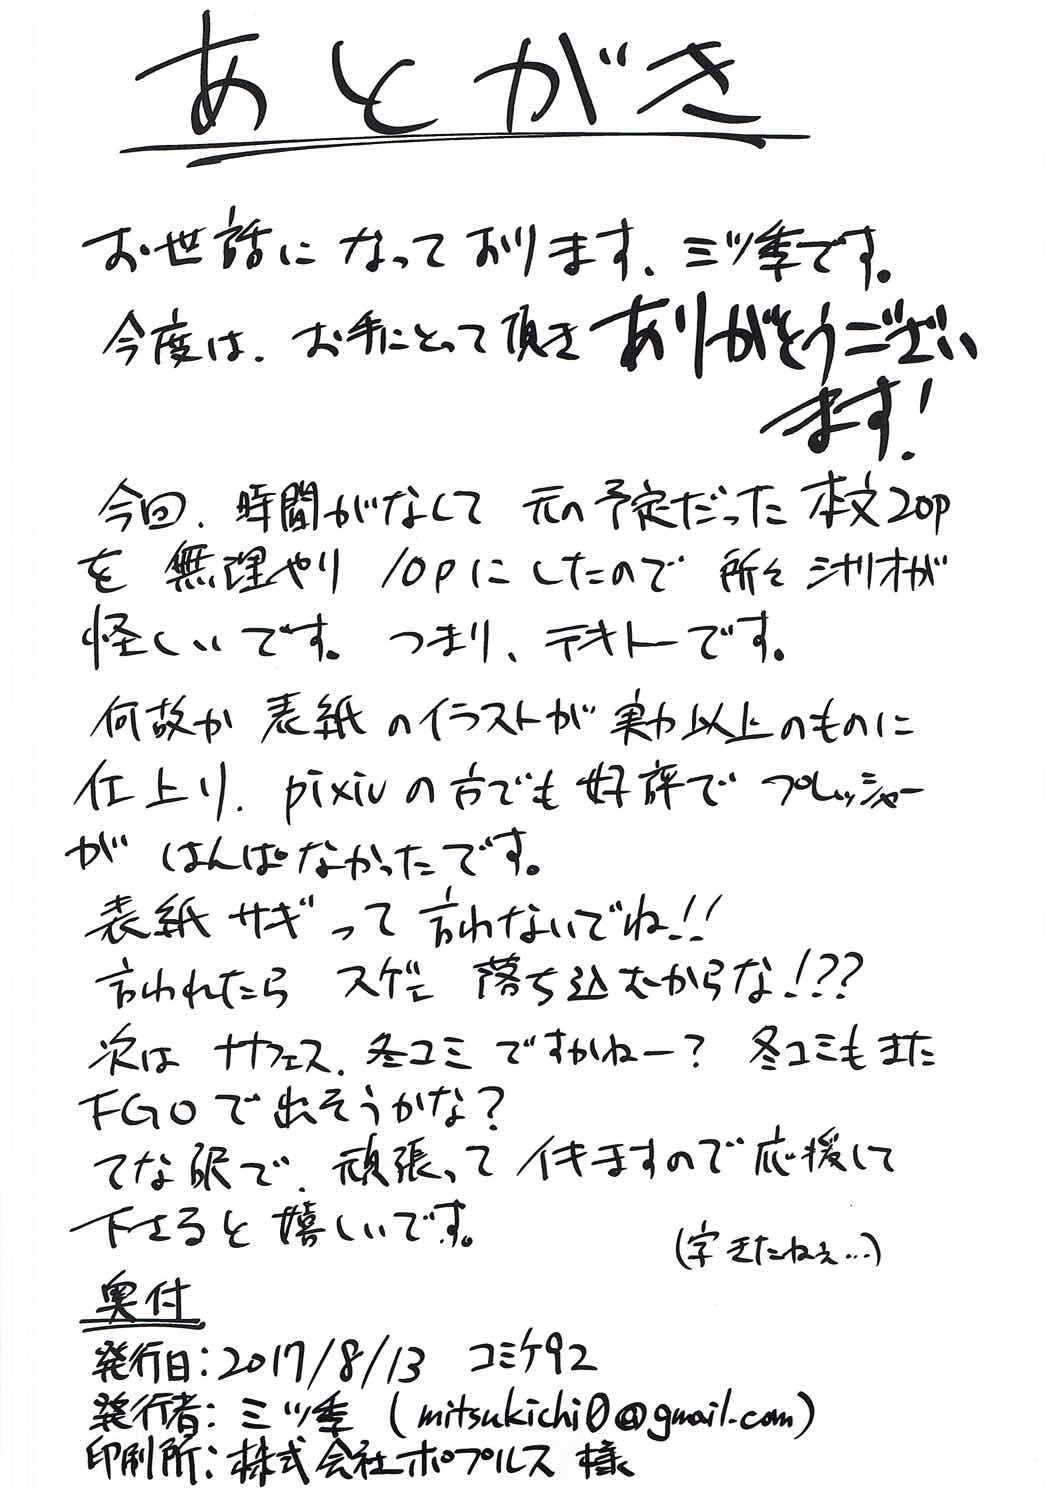 あとがき
お世話になっております、ミツ季です。
今度は、お手にとって頂きありがとうござい
ます!
今回、時間がなくて元の予定だった本文20p
を無理やり10pにしたので所々シナリオが
怪しいです。つまり、テキトーです。
何故か表紙のイラストが実力以上のものに
仕上り、pixivの方でも好評でプレッシャー
がはんぱなかったです。
表紙サギって言わないでね!!
言われたらスゲェ落ち込むからな!??
次はサナフェス、冬コミですかねー?冬コミもまた
FGOで出そうかな?
てな訳で、頑張ってイキますので応援して
下さると嬉しいです。
(字きたねぇ…)
奥付
発行日:2017/8/13 コミケ92
発行者:ミツ季 (mitsukichi0@gmail.com)
印刷所:株式会社ポプルス 様